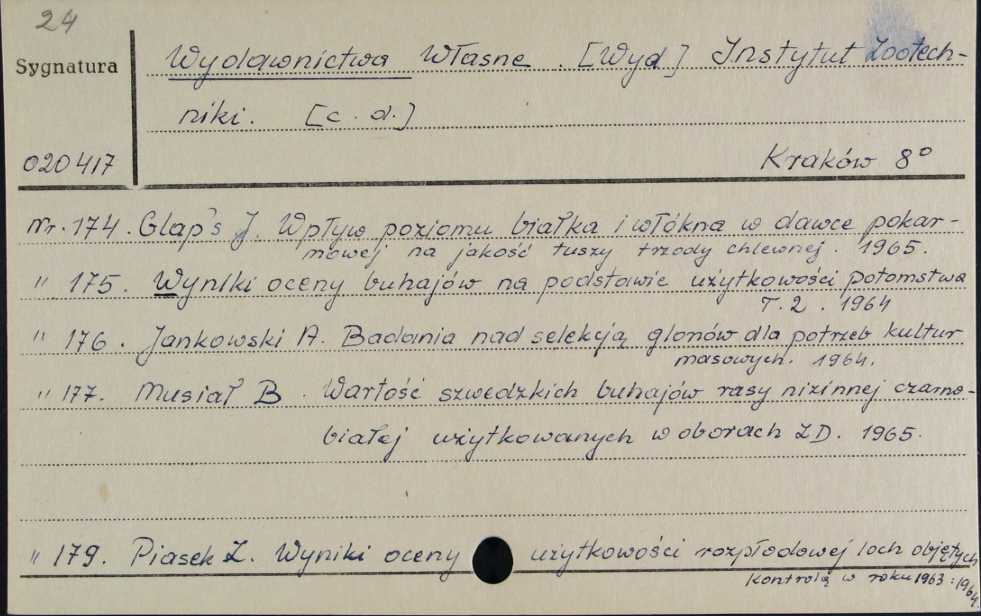 24
Sygnatura
Wydawnictwa Własne. [Wyd] Instytut Zootech-
niki. [c.d.]
020417
Kraków 8°
Nr. 174. Glaps J. Wpływ poziomu białka i włókna w dawce pokar-
mowej na jakość tuszy trzody chlewnej. 1965.
" 175. Wyniki oceny buhajów na podstawie użytkowości potomstwa
T. 2. 1964
" 176. Jankowski A. Badania nad selekcją glonów dla potrzeb kultur
masowych. 1964.
" 177. Musiał B. Wartość szwedzkich buhajów rasy nizinnej czarno-
białej użytkowanych w oborach ZD. 1965.
" 179. Piasek Z. Wyniki oceny użytkowości rozpłodowej loch objętych
kontrolą w roku 1963 : 1964.